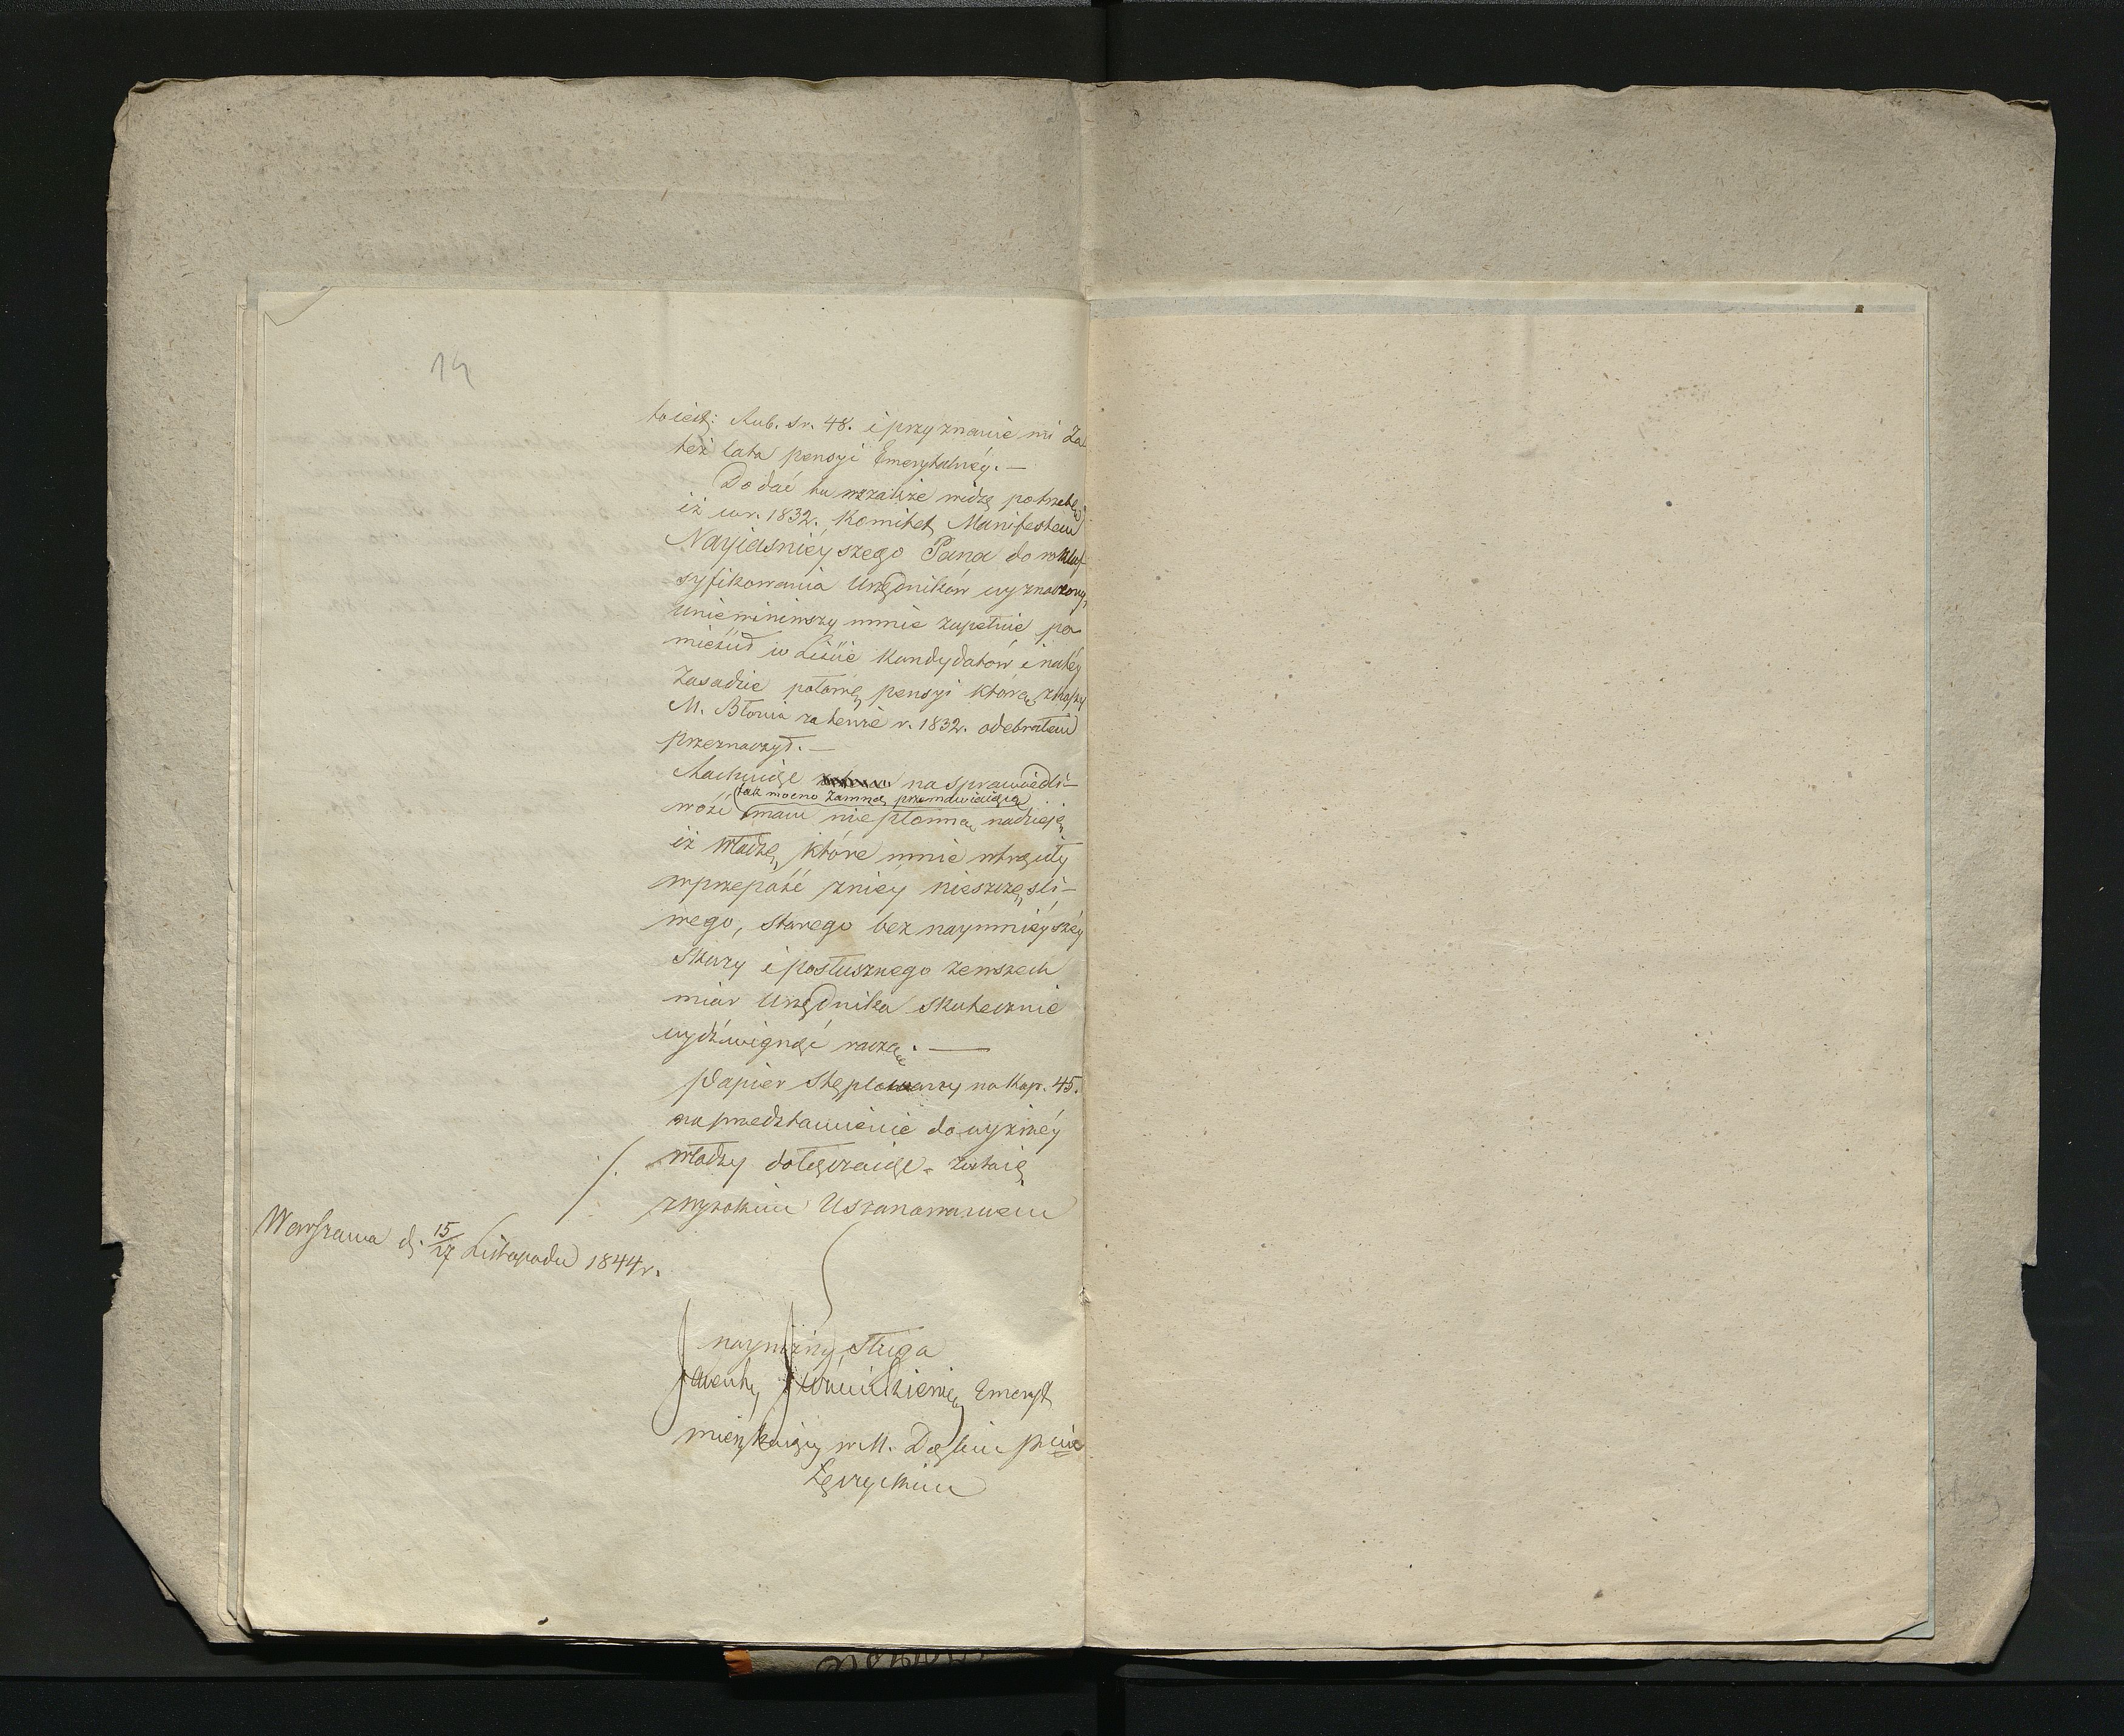 14
toiest: Rub. Sr. 48. i przyznanie mi za
też lata pensyi Emerytalnéy. —
Dodać tu wszakże widzę potrzebę
iż w r. 1832. Komitet Manifestem
Nayiaśnieyszego Pana do wklas-
syfikowania Urzędników wyznaczony,
uniewiniwszy mnie zupełnie po
mieścił w Liście Kandydatów i na téy
Zasadzie połowę pensyi którą z Kassy
M. Błonia za tenże r. 1832. odebrałem
przeznaczył. —
Rachuiąc na sprawiedli-
tak mocno zamną przemawiaiącą
wość mam niepłonną nadzieię
iż Władze, które mnie wtrąciły
w przepaść z niéy nieszczęśli-
wego, starego bez naymnieyszéy
Skazy i posłusznego ze wszech
miar Urzędnika skutecznie
wydźwignąć raczą. —
Papier Stęplowany na Kop. 45.
na przedstawienie do wyższéy
Władzy dołączaiąc. zostaię
z wysokim Uszanowaniem
Warszawa d. 15/27 Listopada 1844 r.
nayniższy Sługa
Emeryt
mieszkaiący w M. Dąbiu pcie
Łęczyckim